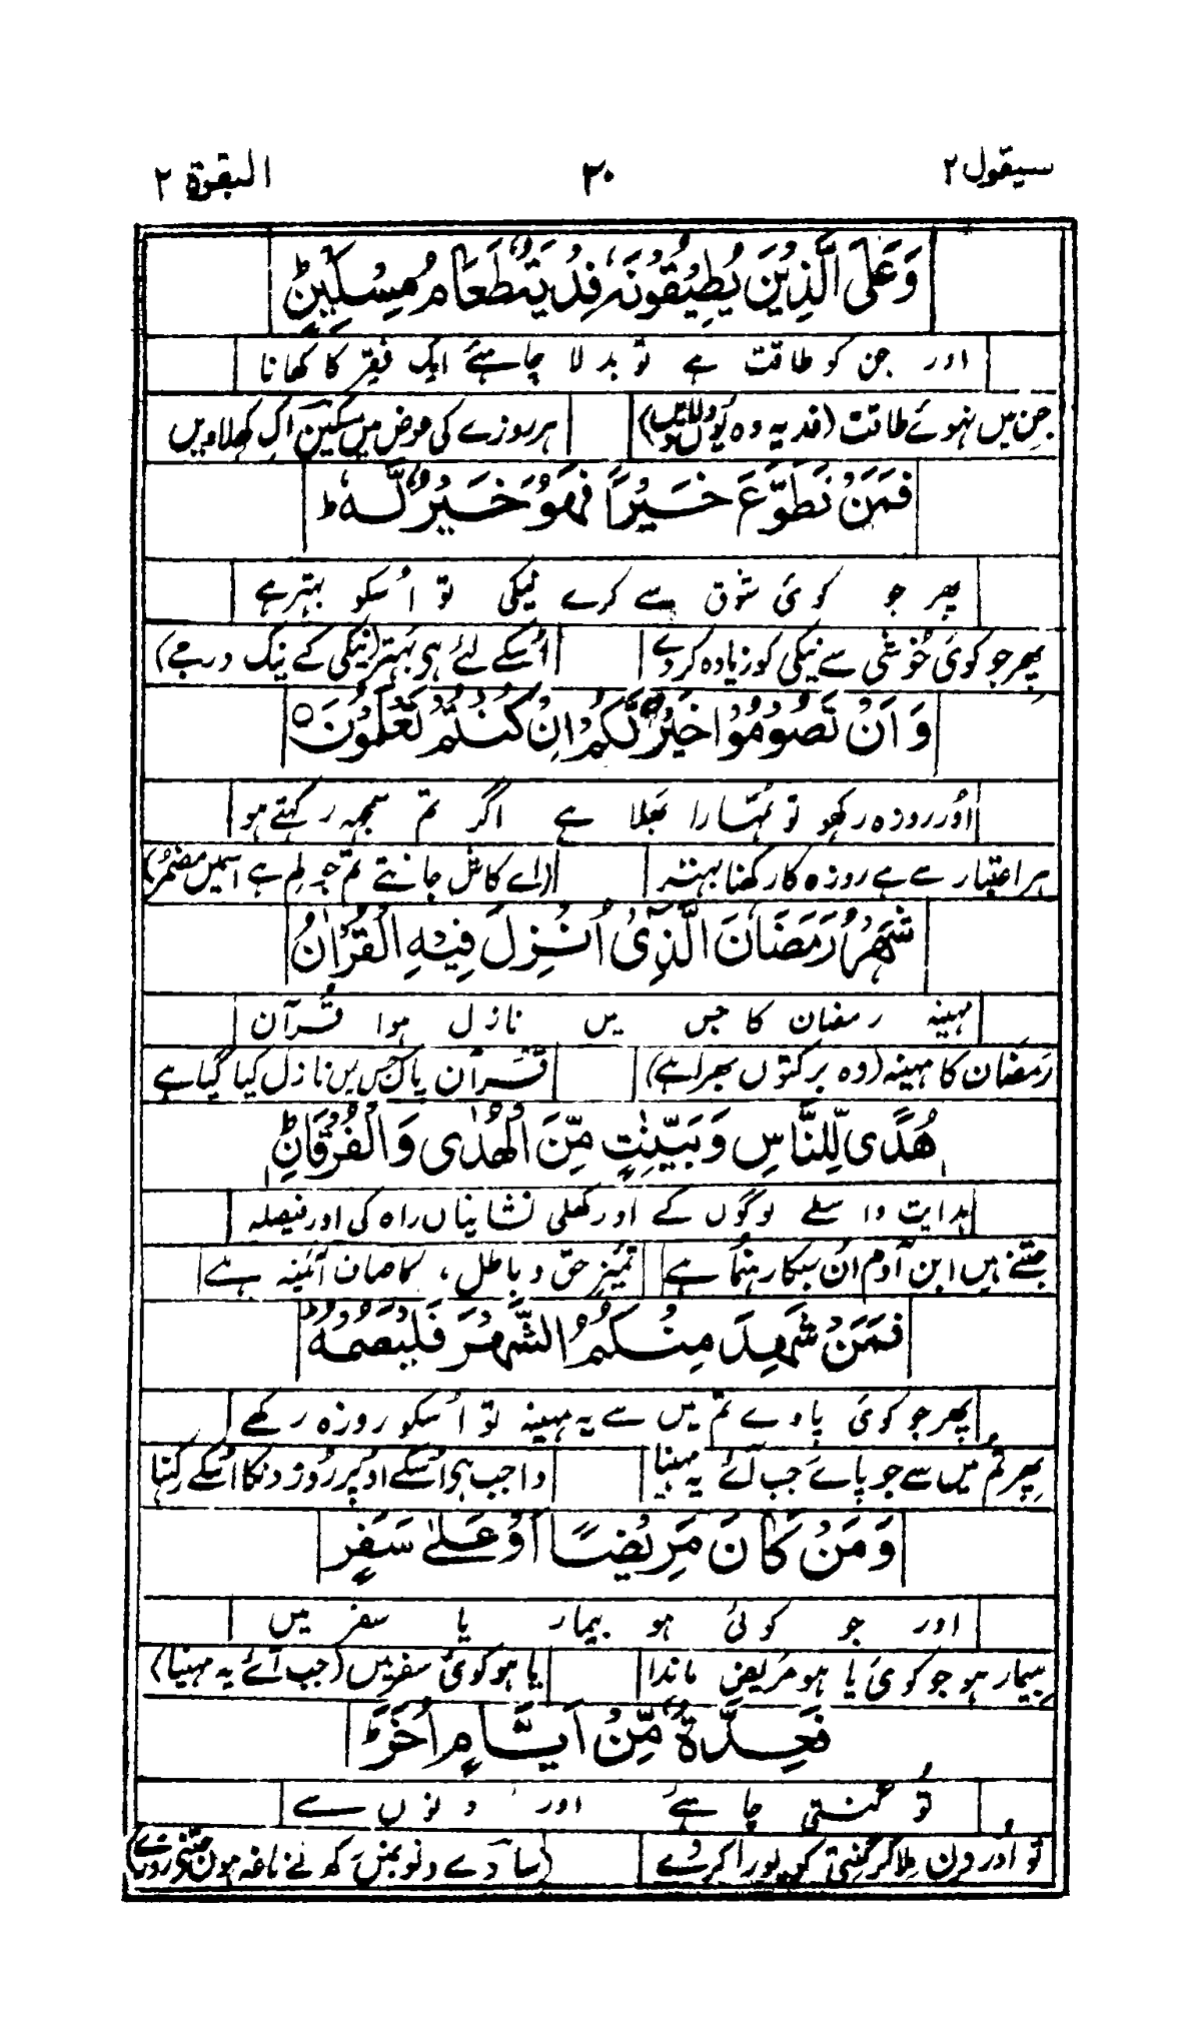 سیقول ۲ ۳۰ البقرة ۲
وَعَلَى الَّذِيْنَ يُطِيْقُوْنَهٗ فِدْيَةٌ طَعَامُ مِسْكِيْنٍ ؕ
اور جن کو طاقت ہے تو بدلا چاہئے ایک فقیر کا کھانا
جن میں نہوئے طاقت (فدیہ وہ یوں دلائیں) ہر روزے کی عوض میں مسکین اک کھلاویں
فَمَنْ تَطَوَّعَ خَيْرًا فَهُوَ خَيْرٌ لَّهٗ ؕ
پھر جو کوئی شوق سے کرے نیکی تو اُسکو بہتر ہے
پھر جو کوئی خوشی سے نیکی کو زیادہ کردے اُسکے لئے ہی بہتر (نیکی کے نیک درجے)
وَاَنْ تَصُوْمُوْا خَيْرٌ لَّكُمْ اِنْ كُنْتُمْ تَعْلَمُوْنَ ○
اور روزہ رکھو تو تمہارا بھلا ہے اگر تم سمجھ رکھتے ہو
ہر اعتبار سے ہے روزہ کا رکھنا بہتر (اے کاش جانتے تم جو ہے اسمیں مضمر)
شَهْرُ رَمَضَانَ الَّذِيْٓ اُنْزِلَ فِيْهِ الْقُرْاٰنُ
مہینہ رمضان کا جس میں نازل ہوا قرآن
رمضان کا مہینہ (وہ برکتوں بھرا ہے) قرآن پاک جس میں نازل کیا گیا ہے
هُدًى لِّلنَّاسِ وَبَيِّنٰتٍ مِّنَ الْهُدٰى وَالْفُرْقَانِ ؕ
ہدایت واسطے لوگوں کے اور کھلی نشانیاں راہ کی اور فیصلہ
جتنے ہیں ابن آدم اُن سبکا رہنما ہے تمیز حق و باطل، کا صاف آئینہ ہے
فَمَنْ شَهِدَ مِنْكُمُ الشَّهْرَ فَلْيَصُمْهُ ؕ
پھر جو کوئی پاوے تم میں سے یہ مہینہ تو اُسکو روزہ رکھے
پھر تم میں سے جو پائے جب آئے یہ مہینا واجب ہی اُسکے اوپر روزونکا اُسکے رکھنا
وَمَنْ كَانَ مَرِيْضًا اَوْ عَلٰى سَفَرٍ
اور جو کوئی ہو بیمار یا سفر میں
بیمار ہو جو کوئی یا ہو مریض ماندا یا ہو کوئی سفر میں (جب آئے یہ مہینا)
فَعِدَّةٌ مِّنْ اَيَّامٍ اُخَرَ ؕ
تو گنتی چاہئے اور دنوں سے
تو اور دن ملا کر گنتی کو پورا کر دے (سادے دنو میں رکھ لے ناغہ ہوں جتنے روزے)